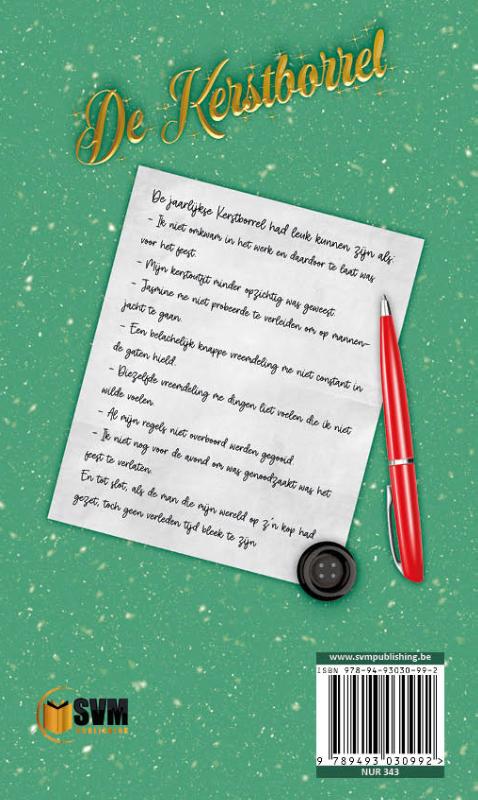 De Kerstborrel
De jaarlijkse Kerstborrel had leuk kunnen zijn als:
- Ik niet omkwam in het werk en daardoor te laat was
voor het feest.
- Mijn kerstoutfit minder opzichtig was geweest.
- Jasmine me niet probeerde te verleiden om op mannen-
jacht te gaan.
- Een belachelijk knappe vreemdeling me niet constant in
de gaten hield.
- Diezelfde vreemdeling me dingen liet voelen die ik niet
wilde voelen.
- Al mijn regels niet overboord werden gegooid.
- Ik niet nog voor de avond om was genoodzaakt was het
feest te verlaten.
En tot slot, als de man die mijn wereld op z'n kop had
gezet, toch geen verleden tijd bleek te zijn
SVM
PUBLISHING
www.svmpublishing.be
ISBN 978-94-93030-99-2
9 789493 030992 >
NUR 343